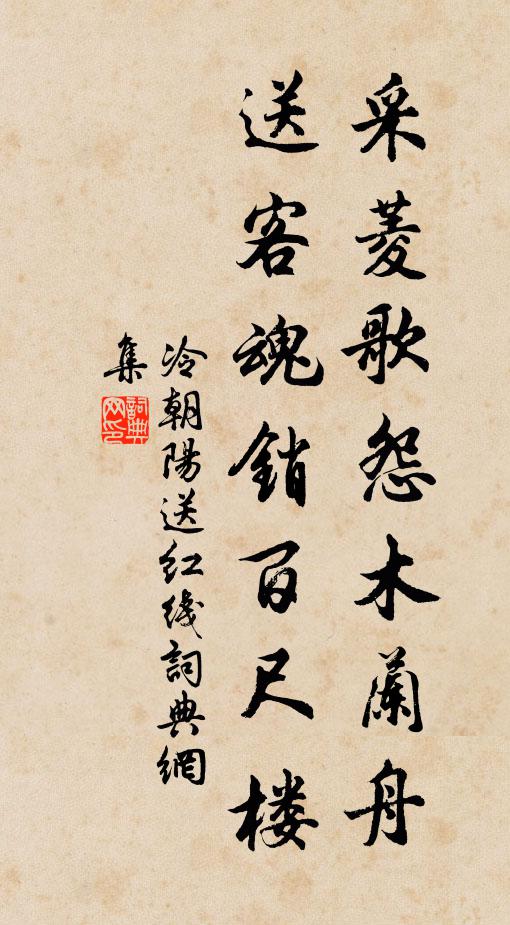 采菱歌怨木蘭舟
送客魂銷百尺楼
冷朝陽送红线詞典網
集
詞典网印